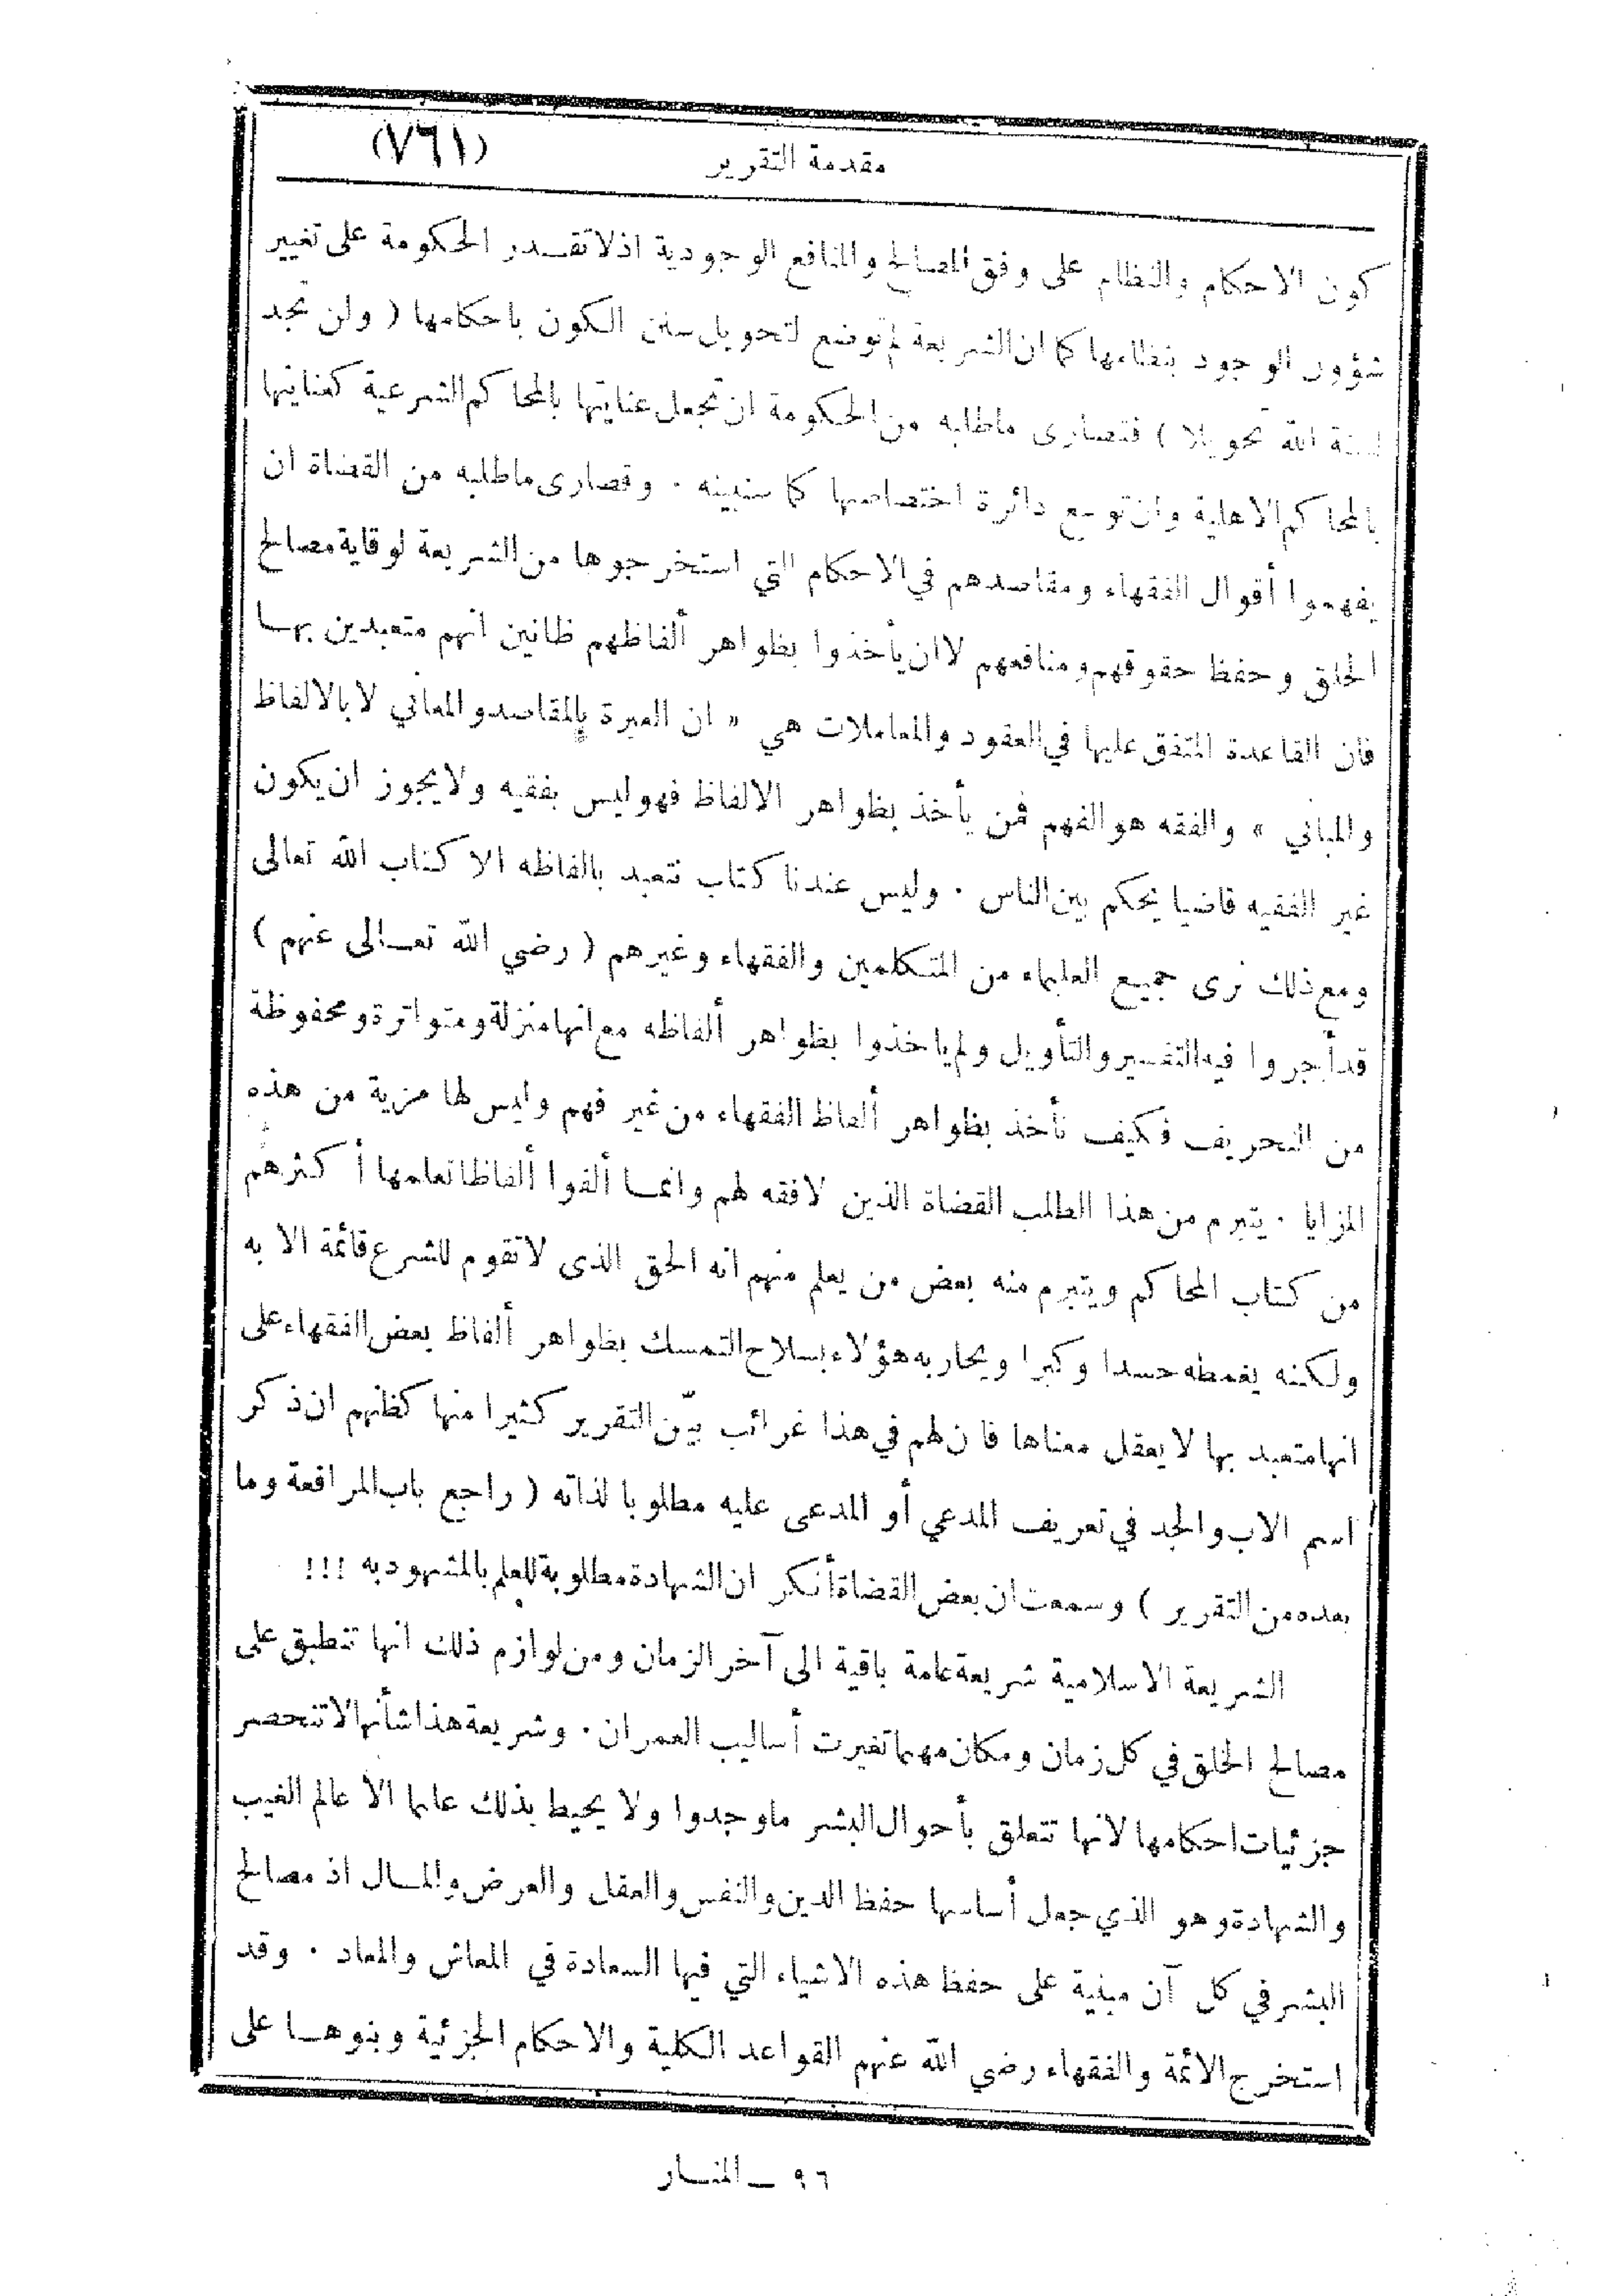 مقدمة التقرير (٧٦١)
كون الاحكام والنظام على وفق المصالح والمنافع الوجودية اذ لا تقدر الحكومة على تغيير
شؤون الوجود بنظامها كما ان الشريعة لم توضع لتحويل سنن الكون باحكامها ( ولن تجد
لسنة الله تحويلا ) فقصارى ماطلبه من الحكومة ان تجعل عنايتها بالمحاكم الشرعية كعنايتها
بالمحاكم الاهلية وان توسع دائرة اختصاصها كما سنبينه . وقصارى ماطلبه من القضاة ان
يفهموا أقوال الفقهاء ومقاصدهم في الاحكام التي استخرجوها من الشريعة لوقاية مصالح
الخلق وحفظ حقوقهم ومنافعهم لا ان يأخذوا بظواهر ألفاظهم ظانين انهم متعبدين بهـا
فان القاعدة المتفق عليها في العقود والمعاملات هي « ان العبرة بالمقاصد والمعاني لا بالالفاظ
والمباني » والفقه هو الفهم فمن يأخذ بظواهر الالفاظ فهو ليس بفقيه ولا يجوز ان يكون
غير الفقيه قاضيا يحكم بين الناس . وليس عندنا كتاب نتعبد بالفاظه الا كتاب الله تعالى
ومع ذلك نرى جميع العلماء من المتكلمين والفقهاء وغيرهم ( رضي الله تعـالى عنهم )
قد أجروا فيه التفسير والتأويل ولم ياخذوا بظواهر ألفاظه مع انها منزلة ومتواترة ومحفوظة
من التحريف فكيف نأخذ بظواهر ألفاظ الفقهاء من غير فهم وليس لها مزية من هذه
المزايا . يتبرم من هذا الطلب القضاة الذين لا فقه لهم وانمـا ألفوا ألفاظا تعلمها أكثرهم
من كتاب المحاكم ويتبرم منه بعض من يعلم منهم انه الحق الذى لا تقوم للشرع قائمة الا به
ولكنه يغمطه حسدا وكبرا ويحاربه هؤلاء بسلاح التمسك بظواهر ألفاظ بعض الفقهاء على
انها متعبد بها لا يعقل معناها فان لهم في هذا غرائب بيّن التقرير كثيرا منها كظنهم ان ذكر
اسم الاب والجد في تعريف المدعي أو المدعى عليه مطلوبا لذاته ( راجع باب المرافعة وما
بعده من التقرير ) وسمعت ان بعض القضاة أنكر ان الشهادة مطلوبة للعلم بالمشهود به !!!
الشريعة الاسلامية شريعة عامة باقية الى آخر الزمان ومن لوازم ذلك انها تنطبق على
مصالح الخلق في كل زمان ومكان مهما تغيرت أساليب العمران . وشريعة هذا شأنها لا تنحصر
جزئيات احكامها لانها تتعلق بأحوال البشر ماوجدوا ولا يحيط بذلك علما الا عالم الغيب
والشهادة وهو الذي جعل أساسها حفظ الدين والنفس والعقل والعرض والمـال اذ مصالح
البشر في كل آن مبنية على حفظ هذه الاشياء التي فيها السعادة في المعاش والمعاد . وقد
استخرج الائمة والفقهاء رضي الله عنهم القواعد الكلية والاحكام الجزئية وبنوهـا على
٩٦ ــ المنـار